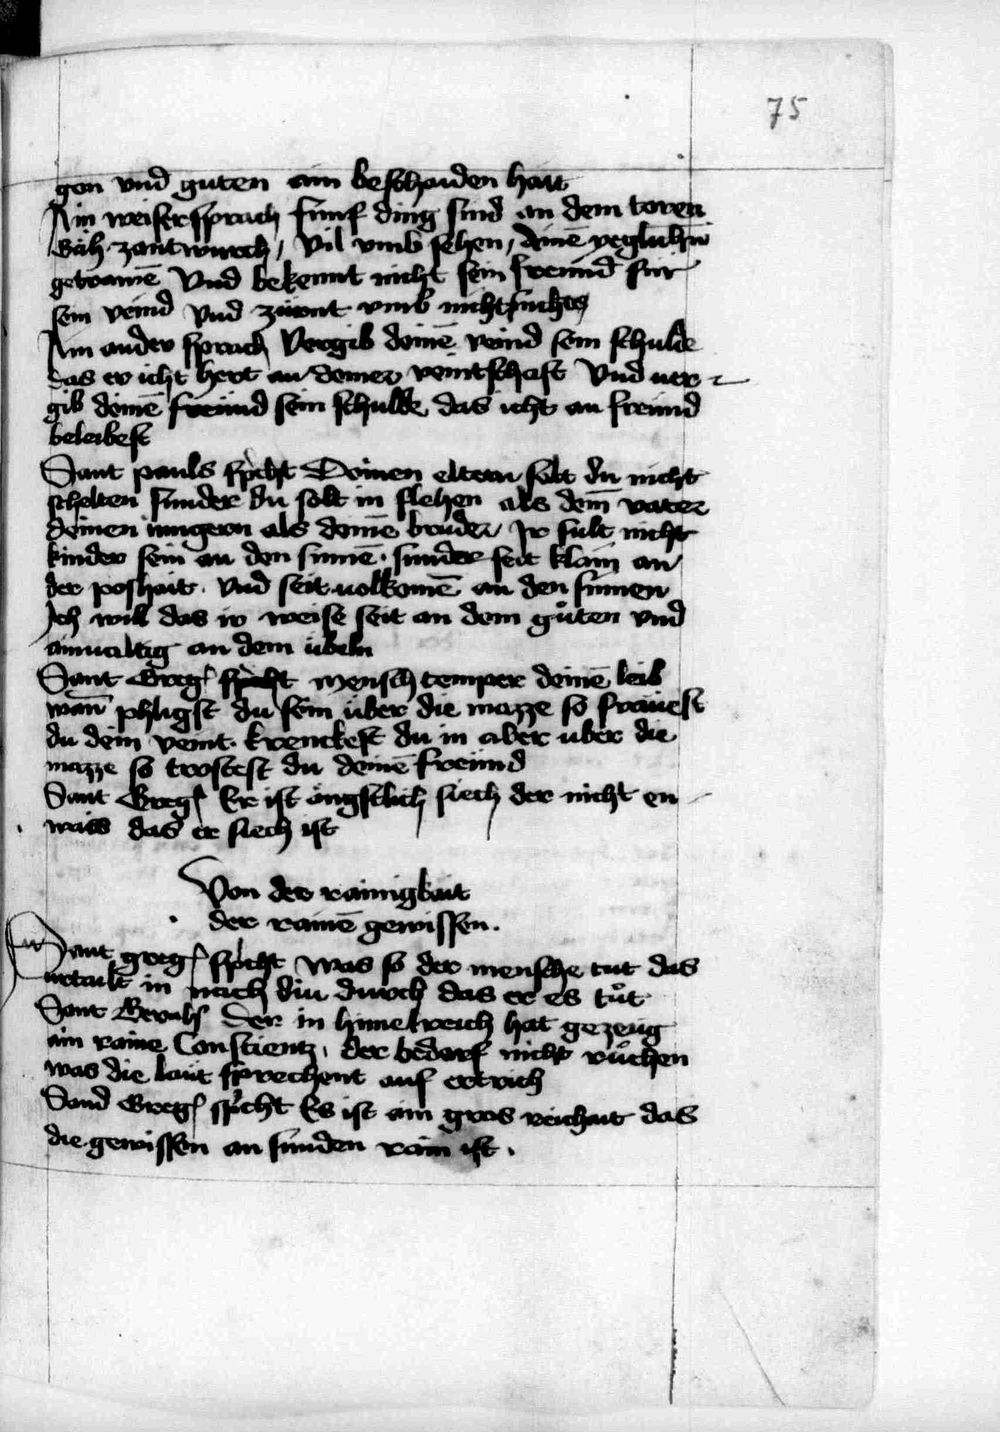 75
gen vnd guten ain beschaiden hait
Ain weiser sprach fünf ding sind an dem toren
Gäh zantwurch / Vil vmb sehen / ainē yeglichn̄
getrawē Vnd bekennt nicht sein freund für
sein veind Vnd zürnt vmb nichtsnichts
Ain ander sprach Vergib deinē veind sein schulde
das er icht hert an deiner veintschaft Vnd ver
gib deinē freund sein schulde das icht an freund
beleibest
Sant pauls spͥcht Deinen eltern solt du nicht
schelten sunder du solt in flehen als dem̄ vater
deinen iungern als deinē bruder Ir sult nicht
kinder sein an den sinnē · sunder seit klain an
der poshait · Vnd seit volkomē an den sinnen
Ich will das ir weise seit an dem gůten vnd
ainualtig an dem übeln
Sant Greg spͥcht mensch temper deinē leib
wan̄ phligst du sein über die mazze so fräuest
du dein veint · krenckest du in aber uber die
mazze so trostest du deinē freünd
Sant Greg Er ist ängstlich siech der nicht en
waiss das er siech ist
Von der rainigkait
der rainē gewissen .
Sant greg spͥcht Was so der mensche tut das
vrtailt in nach diu durch das er es tůt
Sant Bernhͬ Der in himelreich hat gezeug
ain raine Conscientz · der bedarf nicht růchen
was die laüt sprechent auf ertrich
Sand Greg spͥcht Es ist ain gros reichait das
die gewissen an sunden rain ist .